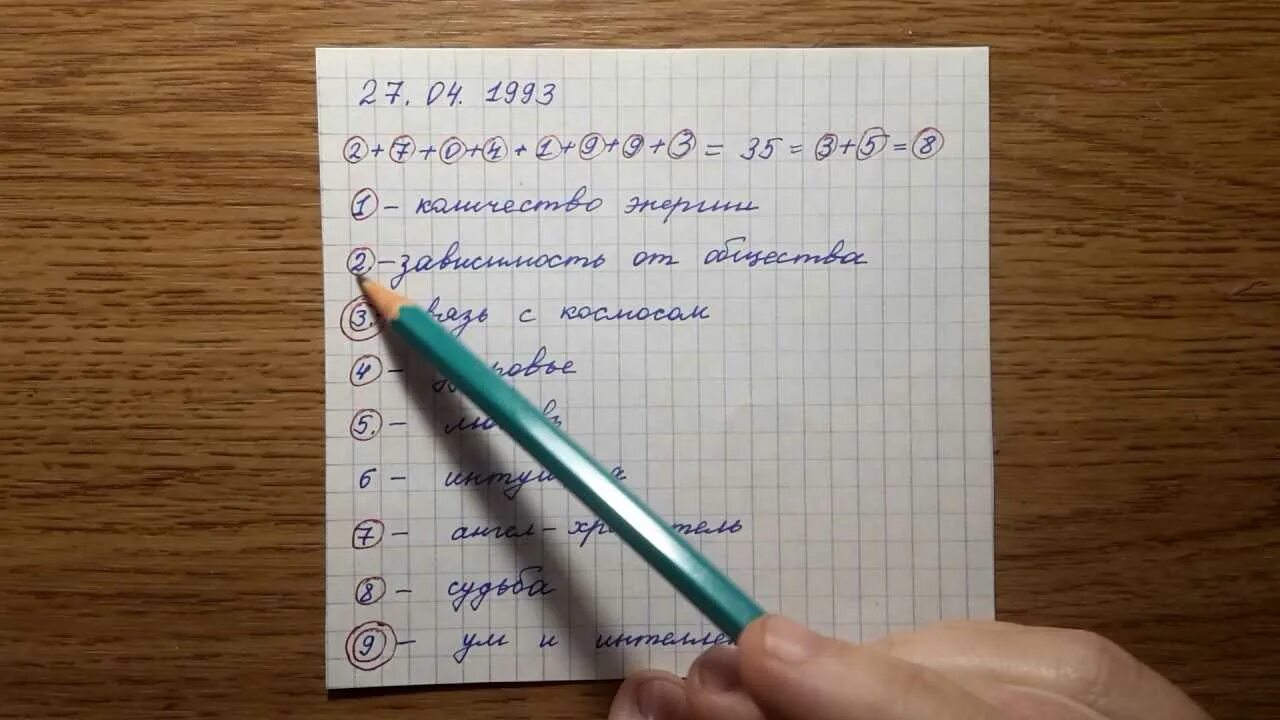 27. 04. 1993
2+7+0+4+1+9+9+3= 35 = 3+5=8
1 - количество энергии
2. - зависимость от общества
3. связь с космосом
4 - здоровье
5. - любовь
6 - интуиция
7 - ангел-хранитель
8 - судьба
9 - ум и интеллект